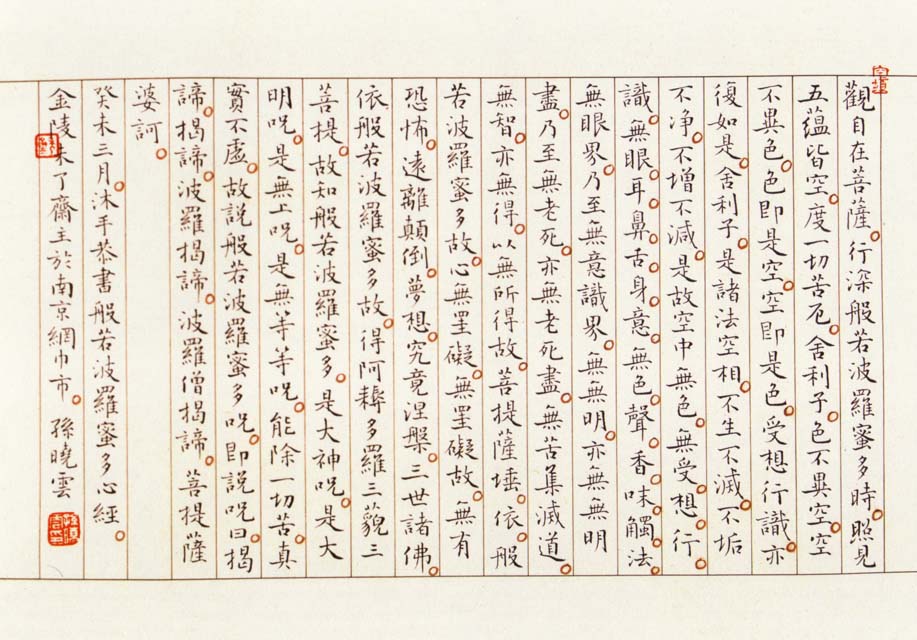 觀自在菩薩。行深般若波羅蜜多時。照見
五蘊皆空。度一切苦厄。舍利子。色不異空。空
不異色。色即是空。空即是色。受想行識。亦
復如是。舍利子。是諸法空相。不生不滅。不垢
不净。不增不減。是故空中無色。無受。想。行。
識。無眼。耳。鼻。舌。身。意。無色。聲。香。味。觸。法。
無眼界。乃至無意識界。無無明。亦無無明
盡。乃至無老死。亦無老死盡。無苦集滅道。
無智。亦無得。以無所得故。菩提薩埵。依般
若波羅蜜多故。心無罣礙。無罣礙故。無有
恐怖。遠離顛倒。夢想。究竟涅槃。三世諸佛。
依般若波羅蜜多故。得阿耨多羅三藐三
菩提。故知般若波羅蜜多。是大神呪。是大
明呪。是無上呪。是無等等呪。能除一切苦。真
實不虛。故説般若波羅蜜多呪。即説呪曰。揭
諦。揭諦。波羅揭諦。波羅僧揭諦。菩提薩
婆訶。
癸未三月。沐手恭書般若波羅蜜多心經。
金陵未了齋主於南京網巾市。孫曉雲